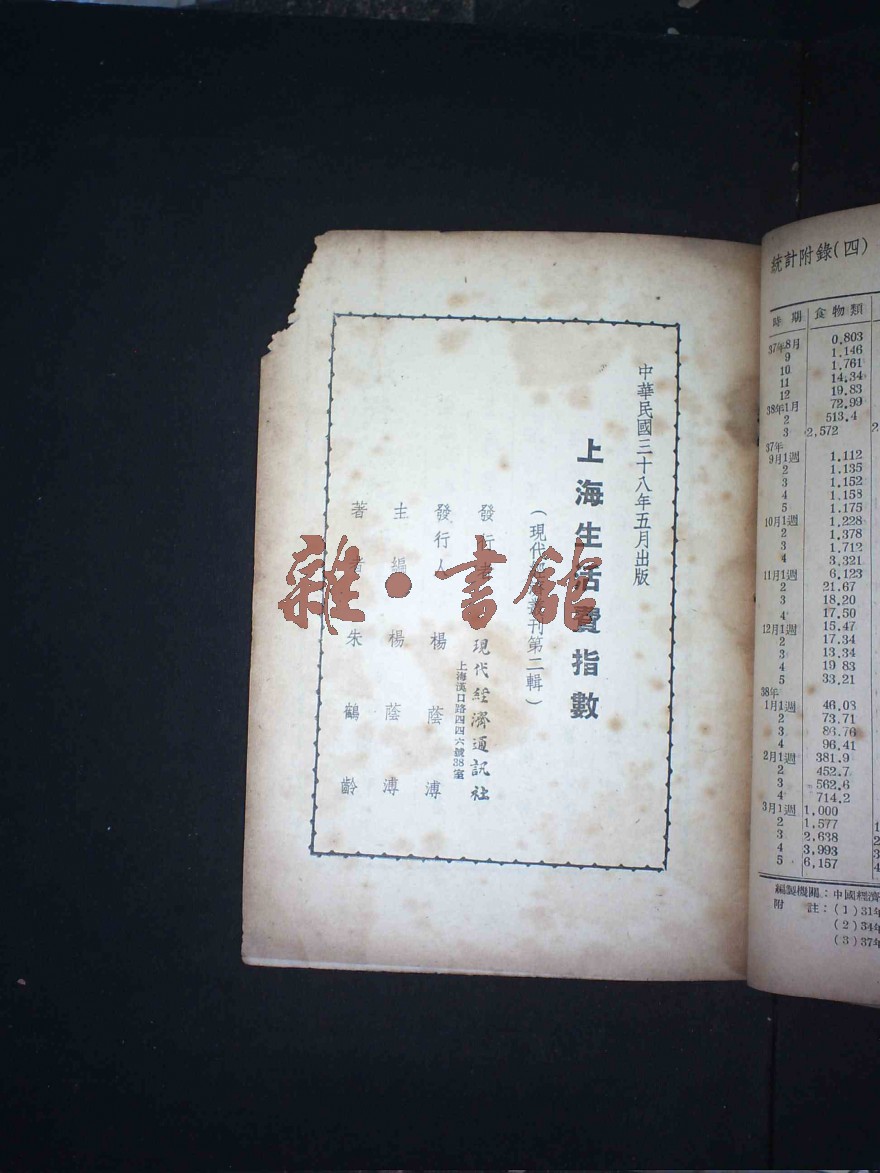 中華民國三十八年五月出版
上海生活費指數
(現代經濟叢刊第二輯)
發行者 現代經濟通訊社
上海漢口路四四六號38室
發行人 楊蔭溥
主編 楊蔭溥
著者 朱鶴齡
雜·書館
統計附錄(四)
時期 食物類
37年8月 0.803
9 1.146
10 1.761
11 14.34
12 19.83
38年1月 72.99
2 513.4
3 2,572
37年
9月1週 1.112
2 1.135
3 1.152
4 1.158
5 1.175
10月1週 1.228
2 1.378
3 1.712
4 3.321
11月1週 6.123
2 21.67
3 18.20
4 17.50
12月1週 15.47
2 17.34
3 13.34
4 19 83
5 33.21
38年
1月1週 46.03
2 73.71
3 86.76
4 96.41
2月1週 381.9
2 452.7
3 562.6
4 714.2
3月1週 1,000
2 1,577
3 2,638
4 3,993
5 6,157
編製機關:中國經濟
附註:(1)31年
(2)34年
(3)37年